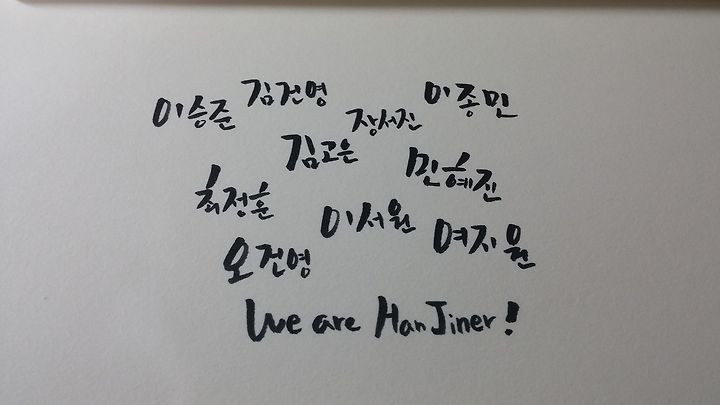 이승준 김건영 이종민
장서진
김고은 민혜진
최정훈 이서원 여지원
오건영
We are HanJiner!